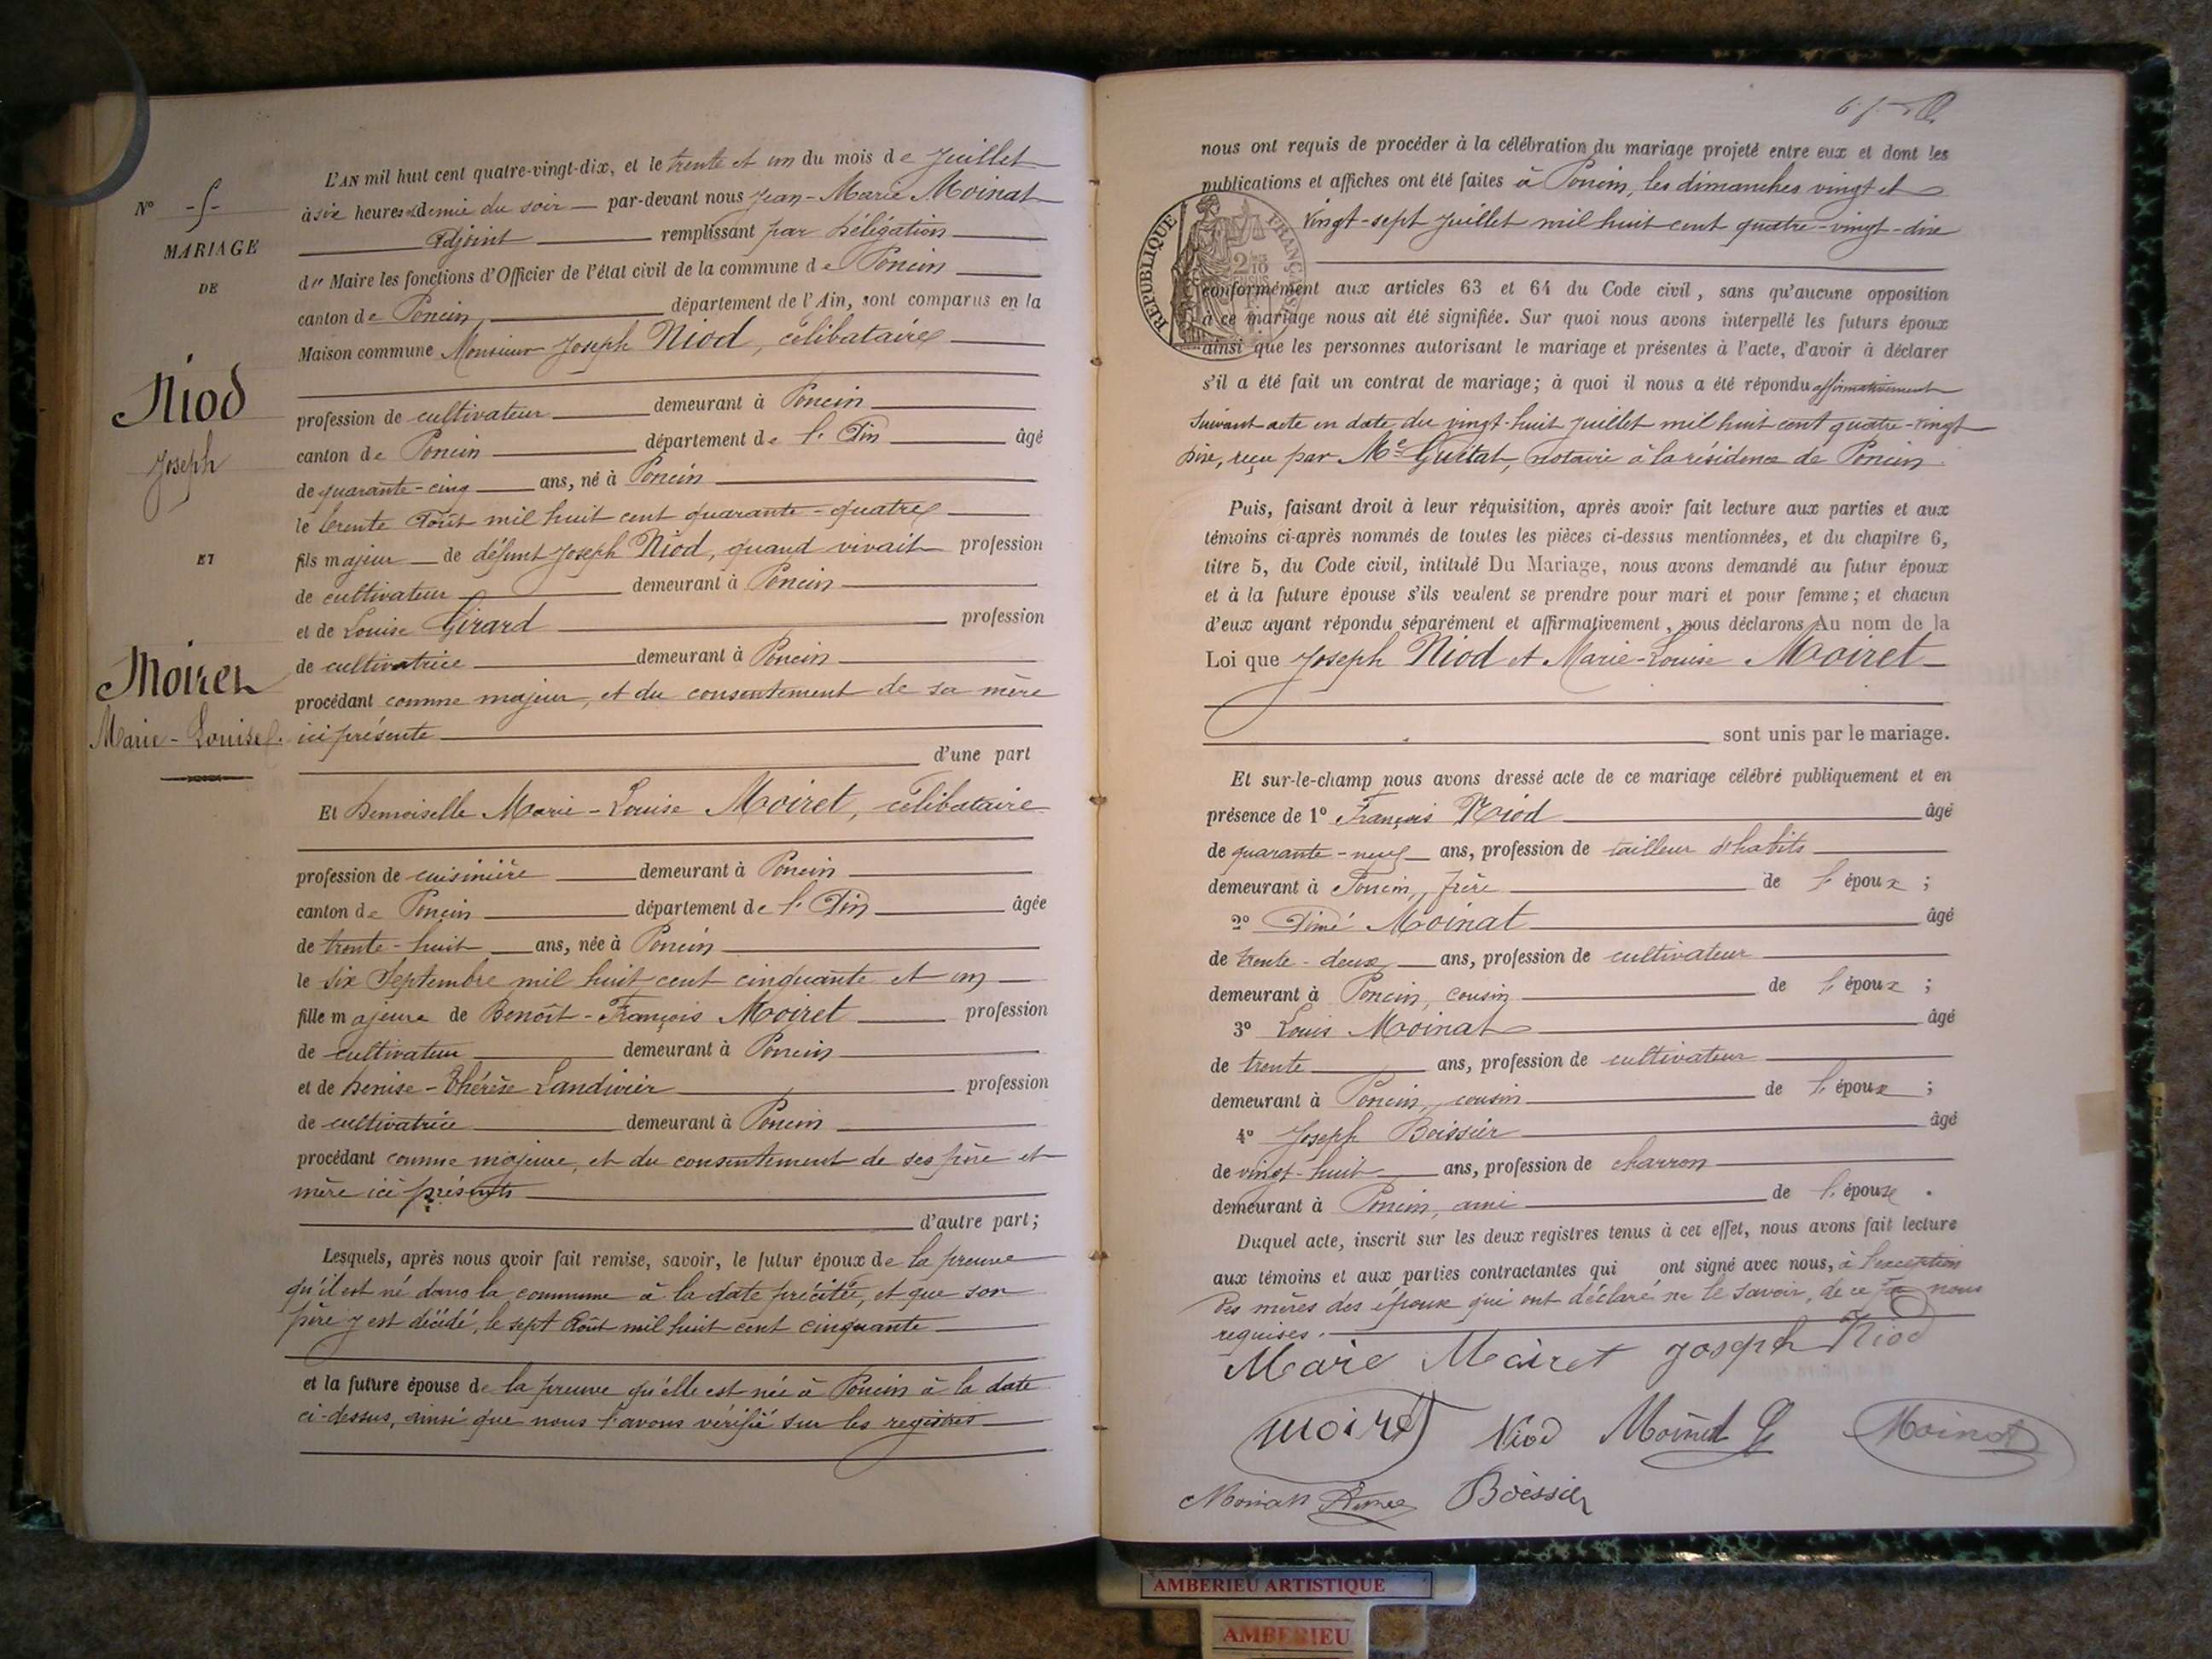 L'AN mil huit cent quatre-vingt-dix, et le trente et un du mois de Juillet
à six heures et demie du soir par-devant nous Jean-Marie Moinat
Adjoint remplissant par délégation
du Maire les fonctions d'Officier de l'état civil de la commune de Poncin
canton de Poncin département de l'Ain, sont comparus en la
Maison commune Monsieur Joseph Niod, célibataire
profession de cultivateur demeurant à Poncin
canton de Poncin département de l'Ain âgé
de quarante-cinq ans, né à Poncin
le trente Août mil huit cent quarante-quatre
fils majeur de défunt Joseph Niod, quand vivait profession
de cultivateur demeurant à Poncin
et de Louise Girard profession
de cultivatrice demeurant à Poncin
procédant comme majeur, et du consentement de sa mère
ici présente
d'une part
Et Demoiselle Marie-Louise Moiret, célibataire
profession de cuisinière demeurant à Poncin
canton de Poncin département de l'Ain âgée
de trente-huit ans, née à Poncin
le six Septembre mil huit cent cinquante et un
fille majeure de Benoît-François Moiret profession
de cultivateur demeurant à Poncin
et de Denise-Thérèse Landivier profession
de cultivatrice demeurant à Poncin
procédant comme majeure, et du consentement de ses père et
mère ici présents
d'autre part;
Lesquels, après nous avoir fait remise, savoir, le futur époux de la preuve
qu'il est né dans la commune à la date précitée, et que son
père y est décédé, le sept Août mil huit cent cinquante
et la future épouse de la preuve qu'elle est née à Poncin à la date
ci-dessus, ainsi que nous l'avons vérifié sur les registres
N° -5-
MARIAGE
DE
Niod
Joseph
ET
Moiret
Marie-Louise.
nous ont requis de procéder à la célébration du mariage projeté entre eux et dont les
publications et affiches ont été faites à Poncin, les dimanches vingt et
vingt-sept Juillet mil huit cent quatre-vingt-dix
RÉPUBLIQUE FRANÇAISE
conformément aux articles 63 et 64 du Code civil, sans qu'aucune opposition
à ce mariage nous ait été signifiée. Sur quoi nous avons interpellé les futurs époux
ainsi que les personnes autorisant le mariage et présentes à l'acte, d'avoir à déclarer
s'il a été fait un contrat de mariage; à quoi il nous a été répondu affirmativement
suivant acte en date du vingt-huit Juillet mil huit cent quatre-vingt
dix, reçu par Me notaire à la résidence de Poncin.
Puis, faisant droit à leur réquisition, après avoir fait lecture aux parties et aux
témoins ci-après nommés de toutes les pièces ci-dessus mentionnées, et du chapitre 6,
titre 5, du Code civil, intitulé Du Mariage, nous avons demandé au futur époux
et à la future épouse s'ils veulent se prendre pour mari et pour femme; et chacun
d'eux ayant répondu séparément et affirmativement, nous déclarons Au nom de la
Loi que Joseph Niod et Marie-Louise Moiret
sont unis par le mariage.
Et sur-le-champ nous avons dressé acte de ce mariage célébré publiquement et en
présence de 1° François Niod âgé
de quarante-neuf ans, profession de tailleur d'habits
demeurant à Poncin, frère de l'époux;
2° Aimé Moinat âgé
de trente-deux ans, profession de cultivateur
demeurant à Poncin, cousin de l'époux;
3° Louis Moinat âgé
de trente ans, profession de cultivateur
demeurant à Poncin, cousin de l'époux;
4° Joseph Boissier âgé
de vingt-huit ans, profession de charron
demeurant à Poncin, ami de l'épouse.
Duquel acte, inscrit sur les deux registres tenus à cet effet, nous avons fait lecture
aux témoins et aux parties contractantes qui ont signé avec nous, à l'exception
des mères des époux qui ont déclaré ne le savoir, de ce par nous
requises.
Marie Moiret Joseph Niod
Moiret Niod Moinat L Moinat
Moinat Aimé Boissier
AMBERIEU ARTISTIQUE
AMBERIEU